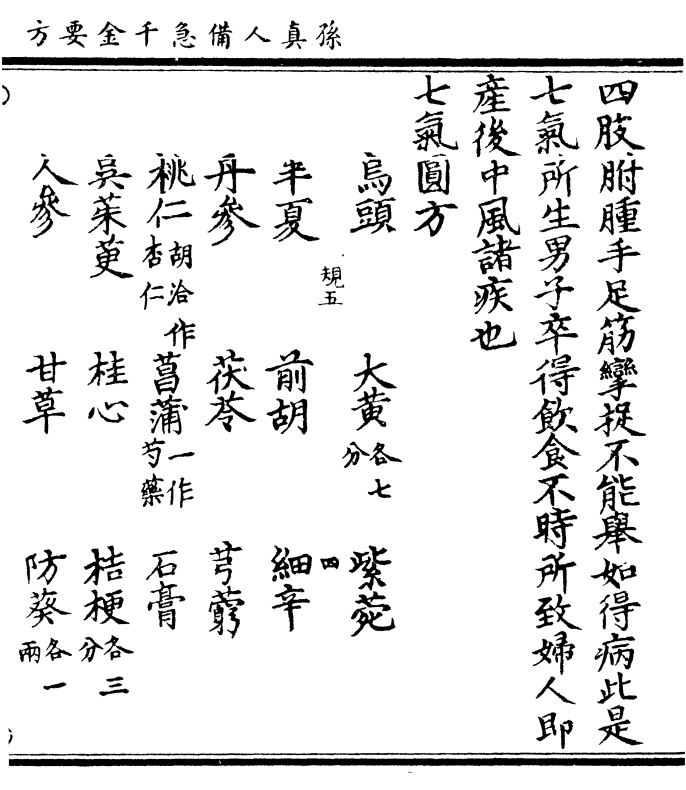 孫真人備急千金要方
四肢胕腫手足筋攣捉不能舉如得病此是
七氣所生男子卒得飲食不時所致婦人即
產後中風諸疾也
七氣圓方
烏頭 大黃各七分 紫菀
規五 四
半夏 前胡 細辛
丹參 茯苓 芎藭
桃仁胡洽作杏仁 菖蒲一作芍藥 石膏
吳茱萸 桂心 桔梗各三分
人參 甘草 防葵各一兩